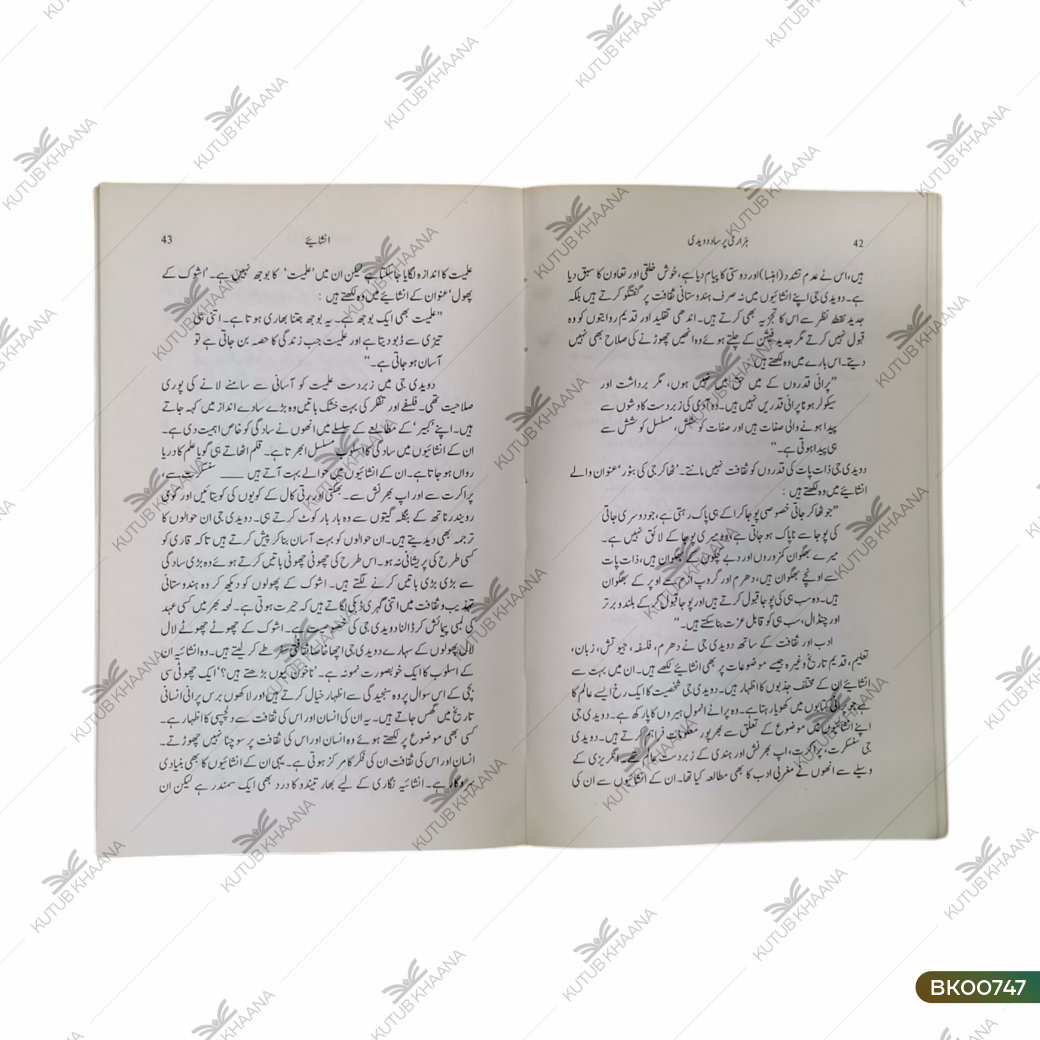 42
ہزاری پرساد دویدی
ہیں، اس نے عدم تشدد (اہنسا) اور دوستی کا پیام دیا ہے، خوش خلقی اور تعاون کا سبق دیا
ہے۔ دویدی جی اپنے انشائیوں میں نہ صرف ہندوستانی ثقافت پر گفتگو کرتے ہیں بلکہ
جدید نقطۂ نظر سے اس کا تجزیہ بھی کرتے ہیں۔ اندھی تقلید اور قدیم روایتوں کو وہ
قبول نہیں کرتے مگر جدید فیشن کے چلتے ہوئے وہ انھیں چھوڑنے کی صلاح بھی نہیں
دیتے۔ اس بارے میں وہ لکھتے ہیں
”پرانی قدروں کے میں حق میں نہیں ہوں، مگر برداشت اور
سیکولر ہونا پرانی قدریں نہیں ہیں۔ وہ آدمی کی زبردست کاوشوں سے
پیدا ہونے والی صفات ہیں اور صفات کو کشش، مسلسل کوشش سے
ہی پیدا ہوتی ہے۔“
دویدی جی ذات پات کی قدروں کو ثقافت نہیں مانتے۔ ’ٹھاکر جی کی بٹور‘ عنوان والے
انشائیے میں وہ لکھتے ہیں :
”جو ٹھاکر جاتی خصوصی پوجا کرا کے ہی پاک رہتی ہے، جو دوسری جاتی
کی پوجا سے ناپاک ہو جاتی ہے، وہ میری پوجا کے لائق نہیں ہے۔
میرے بھگوان کمزوروں اور دبے کچلوں کے بھگوان ہیں، ذات پات
سے اونچے بھگوان ہیں، دھرم اور گروپ ازم سے اوپر کے بھگوان
ہیں۔ وہ سب ہی کی پوجا قبول کرتے ہیں اور پوجا قبول کر کے بلند و برتر
اور چنڈال، سب ہی کو قابل عزت بنا سکتے ہیں۔“
ادب اور ثقافت کے ساتھ دویدی جی نے دھرم، فلسفہ، جیوتش، زبان،
تعلیم، قدیم تاریخ وغیرہ جیسے موضوعات پر بھی انشائیے لکھے ہیں۔ ان میں بہت سے
انشائیے ان کے مختلف جذبوں کا اظہار ہیں۔ دویدی جی شخصیت کا ایک رخ ایسے عالم کا
ہے جو پرانی کتابوں میں کھویا رہتا ہے۔ وہ پرانے انمول ہیروں کا پارکھ ہے۔ دویدی جی
اپنے انشائیوں میں موضوع کے تعلق سے بھرپور معلومات فراہم کرتے ہیں۔ دویدی
جی سنسکرت، پراکرت، اپ بھرنش اور ہندی کے زبردست عالم تھے۔ انگریزی کے
وسیلے سے انھوں نے مغربی ادب کا بھی مطالعہ کیا تھا۔ ان کے انشائیوں سے ان کی
انشائیے
43
علمیت کا اندازہ لگایا جا سکتا ہے لیکن ان میں ’علمیت‘ کا بوجھ نہیں ہے۔ ’اشوک کے
پھول‘ عنوان کے انشائیے میں وہ لکھتے ہیں :
”علمیت بھی ایک بوجھ ہے۔ یہ بوجھ جتنا بھاری ہوتا ہے۔ اتنی ہی
تیزی سے ڈبو دیتا ہے اور علمیت جب زندگی کا حصہ بن جاتی ہے تو
آسان ہو جاتی ہے۔“
دویدی جی میں زبردست علمیت کو آسانی سے سامنے لانے کی پوری
صلاحیت تھی۔ فلسفے اور تفکر کی بہت خشک باتیں وہ بڑے سادے انداز میں کہہ جاتے
ہیں۔ اپنے ’کبیر‘ کے مطالعے کے سلسلے میں انھوں نے سادگی کو خاص اہمیت دی ہے۔
ان کے انشائیوں میں سادگی کا اسلوب مسلسل ابھرتا ہے۔ قلم اٹھاتے ہی گویا علم کا دریا
رواں ہو جاتا ہے۔ ان کے انشائیوں میں حوالے بہت آتے ہیں ــــــ سنسکرت سے،
پراکرت سے اور اپ بھرنش سے۔ بھکتی اور رتی کال کے کویوں کی کویتائیں اور کوی
رویندر ناتھ کے بنگلہ گیتوں سے وہ بار بار کوٹ کرتے ہی۔ دویدی جی ان حوالوں کا
ترجمہ بھی دیدیتے ہیں۔ ان حوالوں کو بہت آسان بنا کر پیش کرتے ہیں تاکہ قاری کو
کسی طرح کی پریشانی نہ ہو۔ اس طرح کی چھوٹی چھوٹی باتیں کرتے ہوئے وہ بڑی سادگی
سے بڑی بڑی باتیں کرنے لگتے ہیں۔ اشوک کے پھولوں کو دیکھ کر وہ ہندوستانی
تہذیب و ثقافت میں اتنی گہری ڈبکی لگاتے ہیں کہ حیرت ہوتی ہے۔ لمحہ بھر میں کسی عہد
کی لمبی پیمائش کر ڈالنا دویدی جی کی خصوصیت ہے۔ اشوک کے چھوٹے چھوٹے لال
لال پھولوں کے سہارے دویدی جی اچھا خاصا ثقافتی سفر طے کر لیتے ہیں۔ وہ انشائیہ ان
کے اسلوب کا ایک خوبصورت نمونہ ہے۔ ’ناخون کیوں بڑھتے ہیں؟‘ ایک چھوٹی سی
بچی کے اس سوال پر وہ سنجیدگی سے اظہار خیال کرتے ہیں اور لاکھوں برس پرانی انسانی
تاریخ میں گھس جاتے ہیں۔ یہ ان کی انسان اور اس کی ثقافت سے دلچسپی کا اظہار ہے۔
کسی بھی موضوع پر لکھتے ہوئے وہ انسان اور اس کی ثقافت پر سوچنا نہیں چھوڑتے۔
انسان اور اس کی ثقافت ان کی فکر کا مرکز ہوتی ہے۔ یہی ان کے انشائیوں کا بھی بنیادی
سروکار ہے۔ انشائیہ نگاری کے لیے بھارتیندو کا درد بھی ایک سمندر ہے لیکن ان
KUTUB KHAANA
BK00747